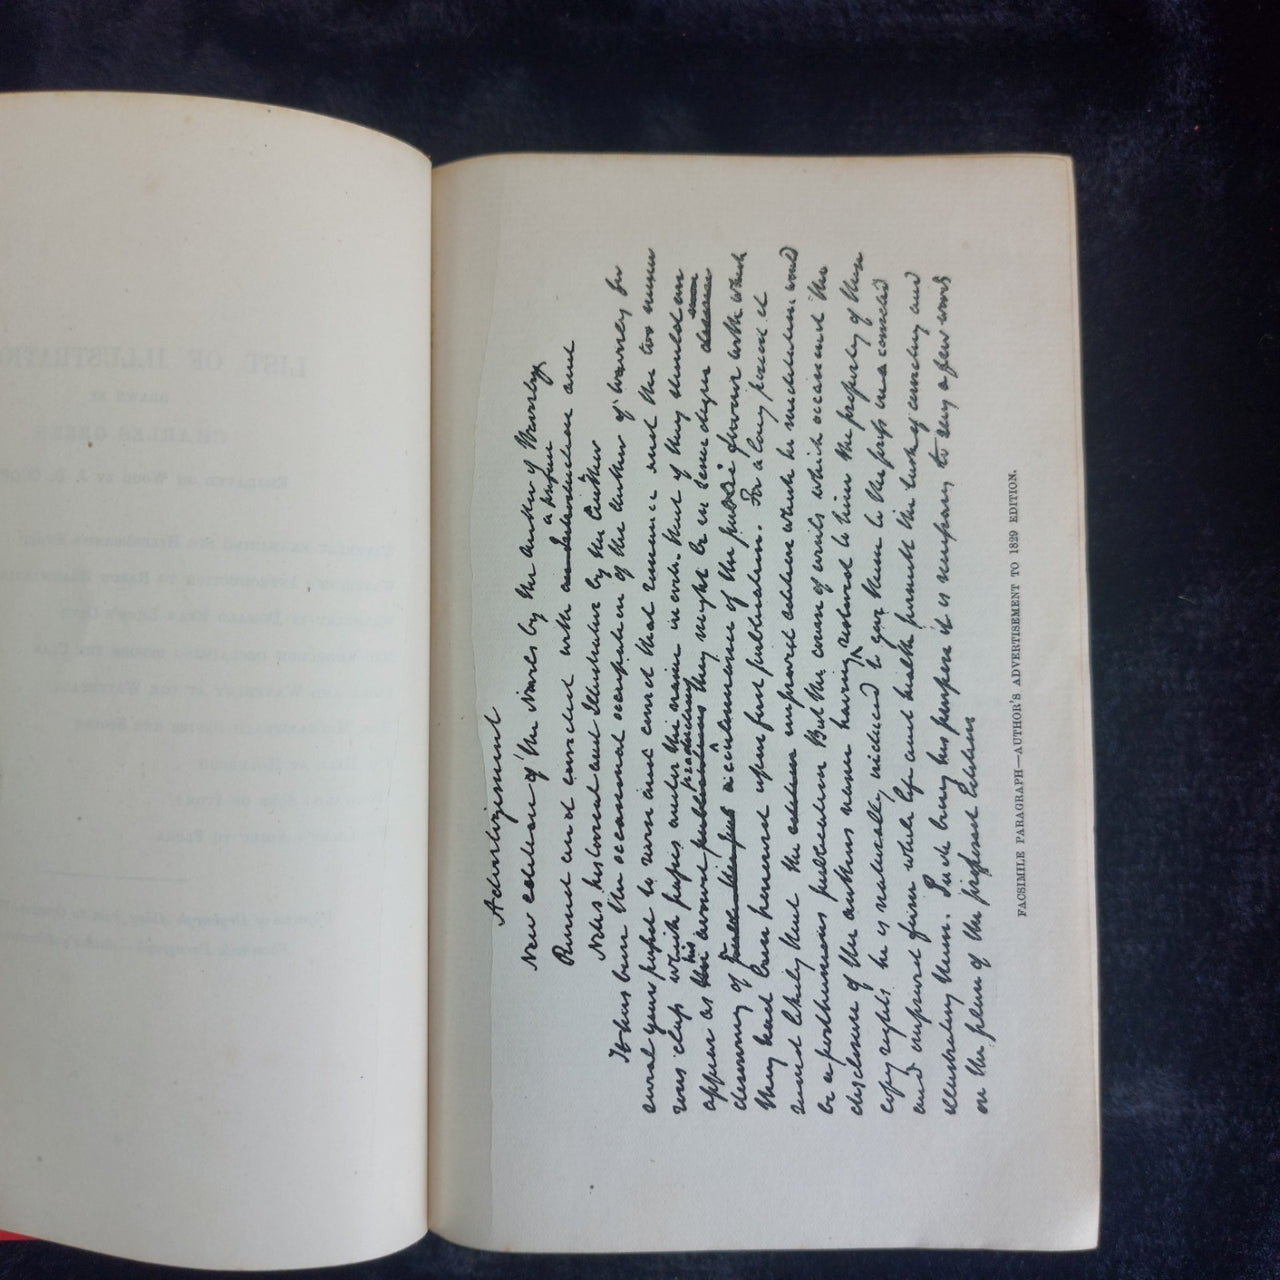 Advertizement
New edition of the Novels by the author of Waverley
a preface
Revised and corrected with an Introduction and
Notes historical and Illustrative by the Author
It has been the occasional occupation of the Author of Waverley for
several years past to revise and correct that romance and the two numer
ous class which passes under the name in order that if they should ever
his productions some
appear as avowed publications they might be in some degree
deserving of a continuance of the public favour with which
they have been honoured upon first publication. For a long period it
seemd likely that the edition improved edition which he meditated would
be a posthumous publication But the course of events which occasiond the
disclosure of the authors name having restored to him the property of these
copy rights he is naturally induced to give them to the press in a corrected
and improved form while life and health permitt the task of correcting and
illustrating them. Such being his purpose it is necessary to say a few words
on the plan of the proposed Edition
FACSIMILE PARAGRAPH—AUTHOR'S ADVERTISEMENT TO 1829 EDITION.